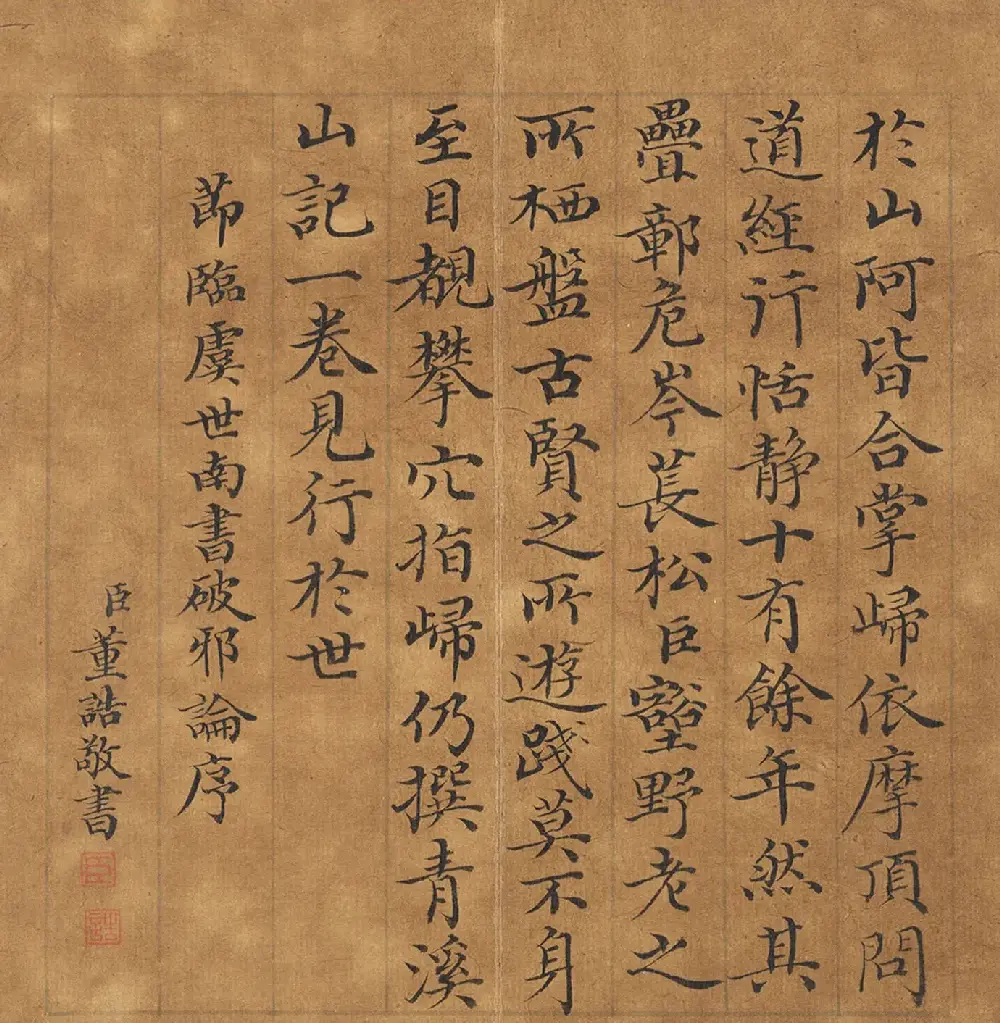 於山阿皆合掌歸依摩頂問
道經行恬静十有餘年然其
疊鄣危岑萇松巨壑野老之
所栖盤古賢之所遊踐莫不身
至目覩攀穴指歸仍撰青溪
山記一卷見行於世
節臨虞世南書破邪論序
臣董誥敬書
臣
誥